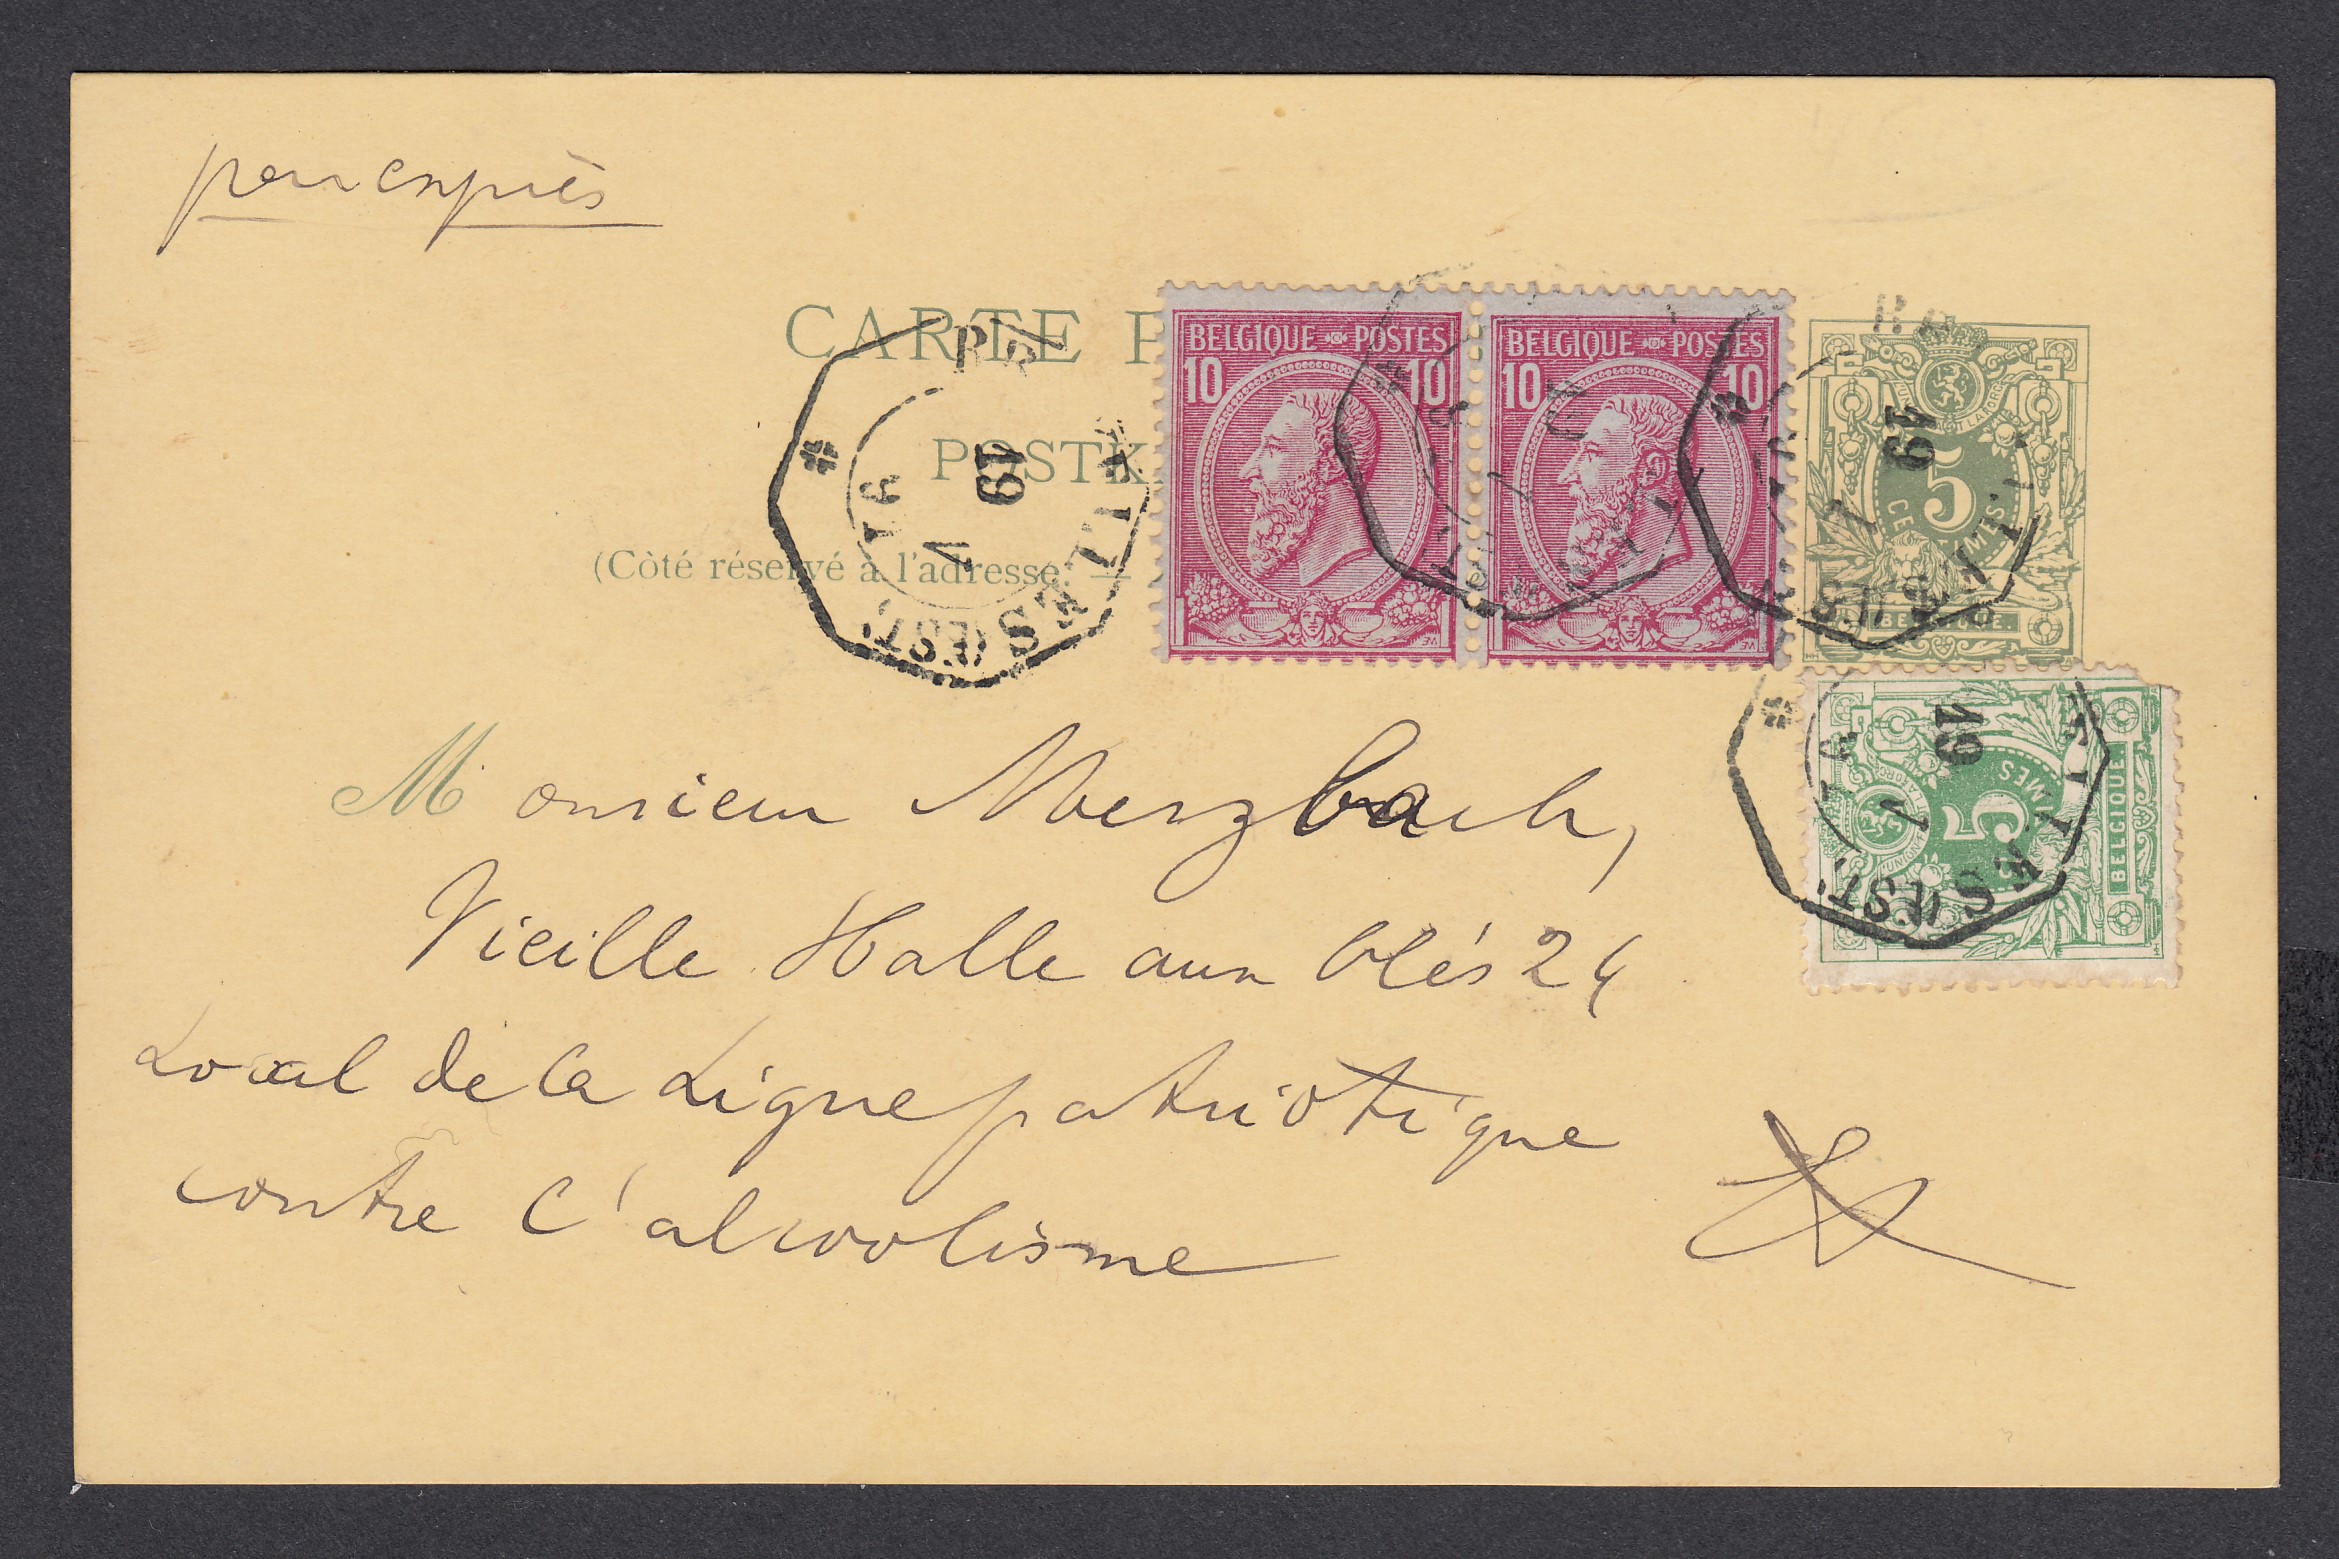 par exprès
CARTE P
BELGIQUE POSTES
10 10
BELGIQUE POSTES
10 10
POSTK
(Côté réservé à l'adresse. —
19
(EST)
19
5
BELGIQUE.
19
5
(EST)
BELGIQUE.
Monsieur Merzbach,
Vieille Halle aux blés 24
Local de la Ligue patriotique
contre l'alcoolisme